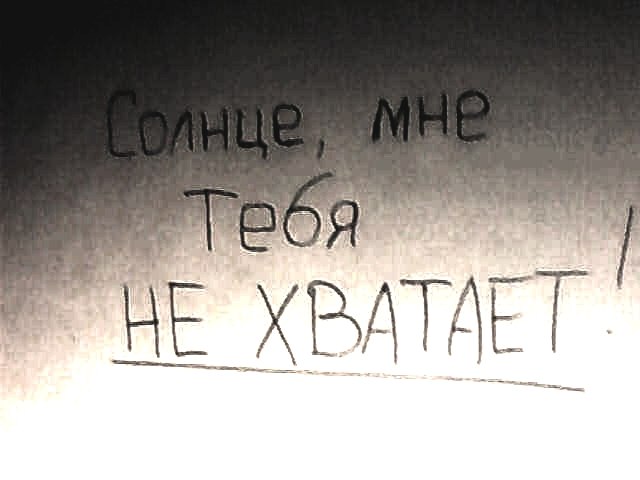 Солнце, мне
тебя
НЕ ХВАТАЕТ!